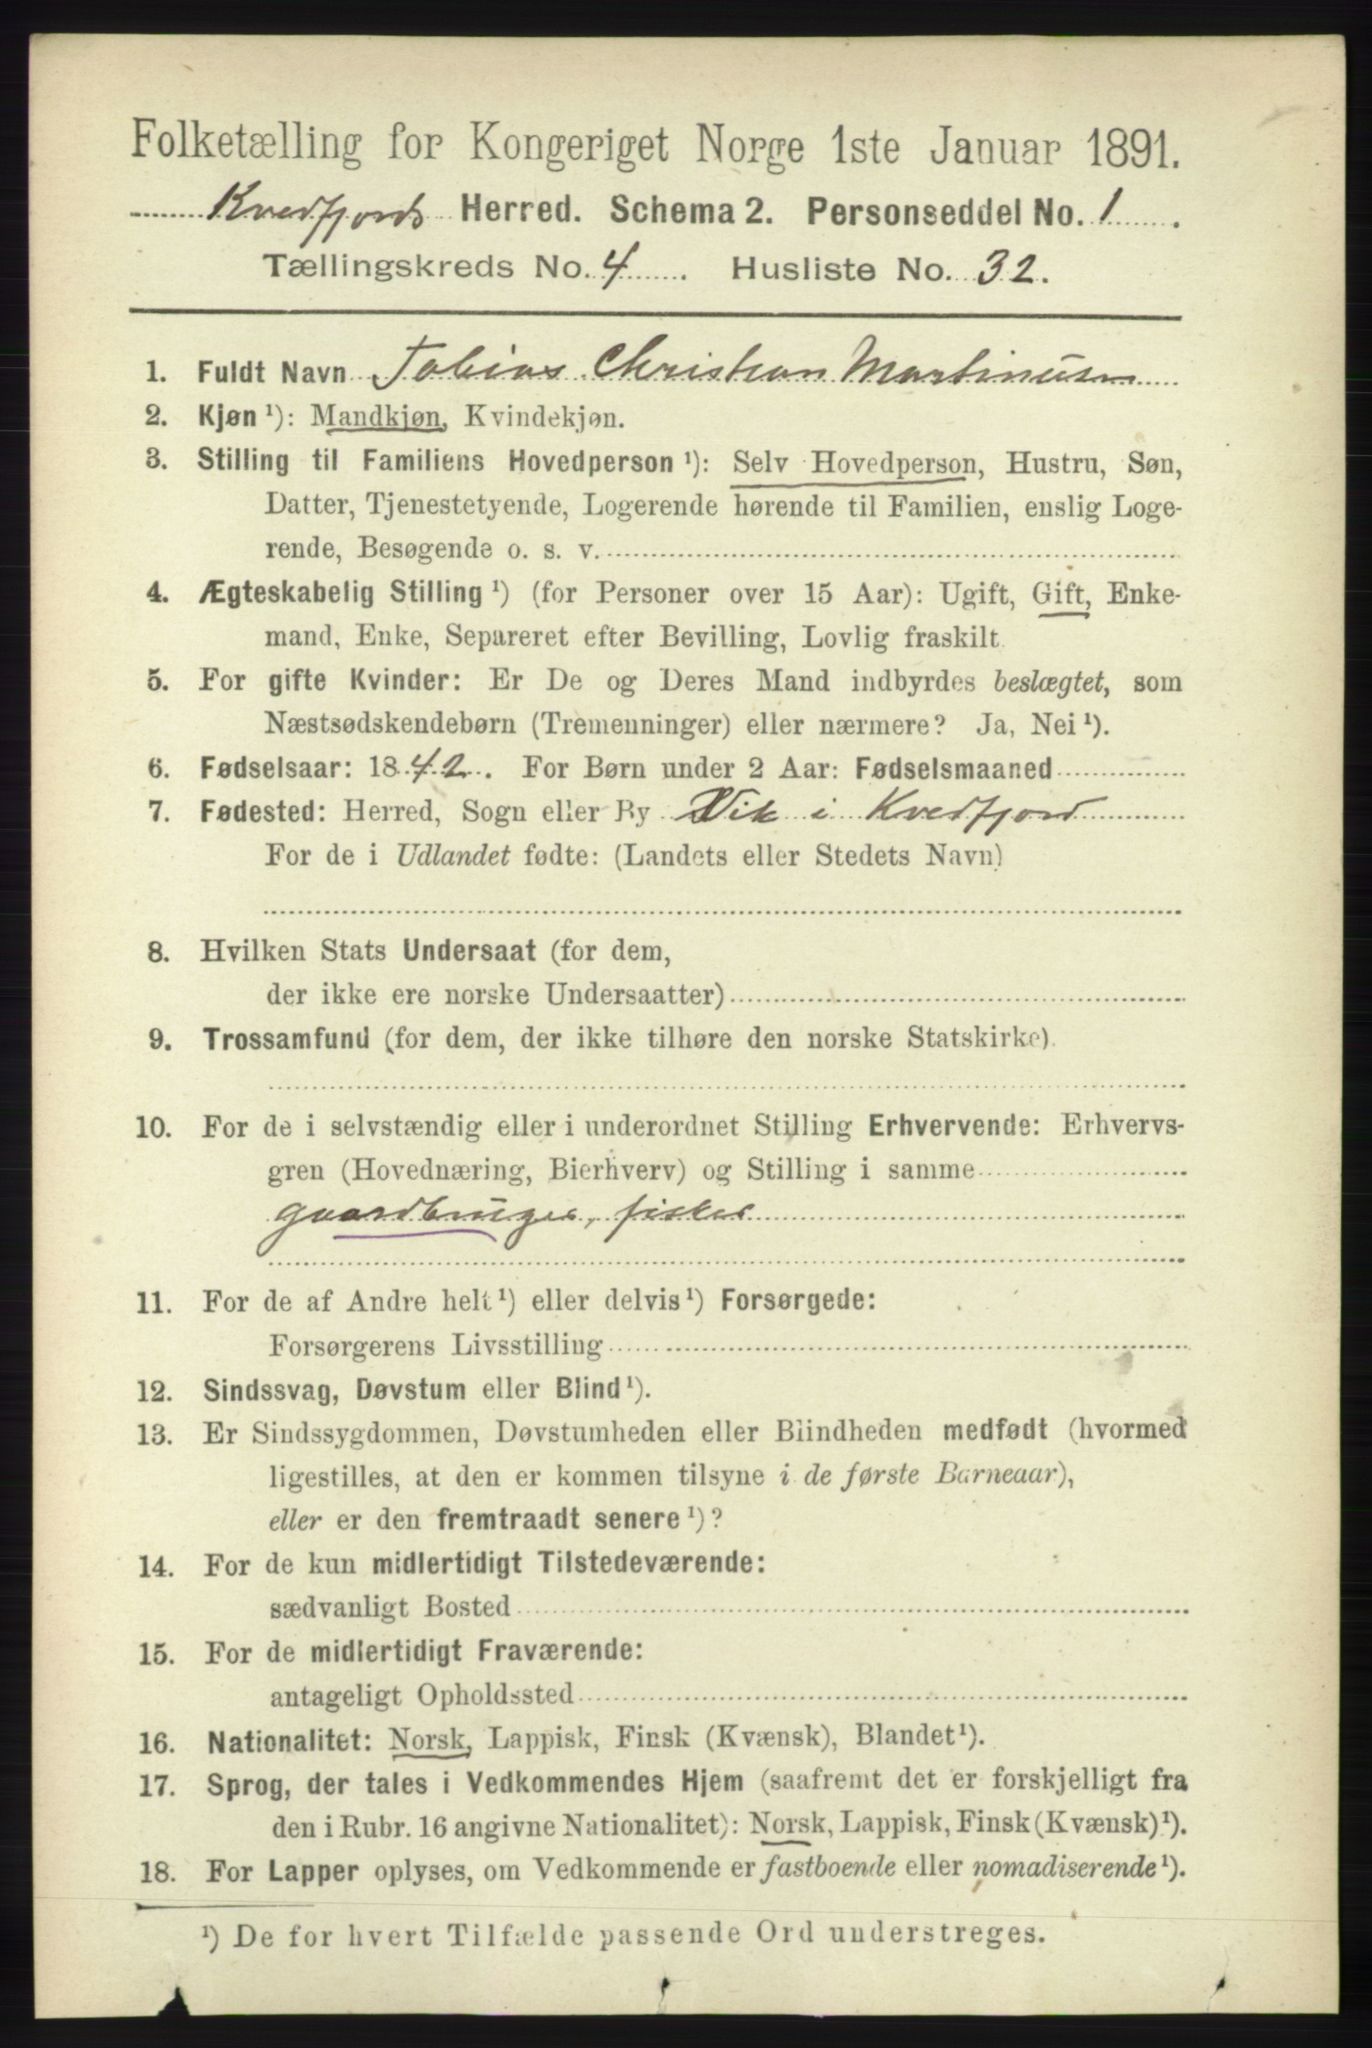 Folketælling for Kongeriget Norge 1ste Januar 1891.
Kvedfjords Herred. Schema 2. Personseddel No. 1.
Tællingskreds No. 4. Husliste No. 32.
1. Fuldt Navn Tobias Christian Martinusen
2. Kjøn ¹): Mandkjøn, Kvindekjøn.
3. Stilling til Familiens Hovedperson ¹): Selv Hovedperson, Hustru, Søn,
Datter, Tjenestetyende, Logerende hørende til Familien, enslig Loge-
rende, Besøgende o. s. v.
4. Ægteskabelig Stilling ¹) (for Personer over 15 Aar): Ugift, Gift, Enke-
mand, Enke, Separeret efter Bevilling, Lovlig fraskilt.
5. For gifte Kvinder: Er De og Deres Mand indbyrdes beslægtet, som
Næstsødskendebørn (Tremenninger) eller nærmere? Ja, Nei ¹).
6. Fødselsaar: 1842. For Børn under 2 Aar: Fødselsmaaned
7. Fødested: Herred, Sogn eller By Vik i Kvedfjord
For de i Udlandet fødte: (Landets eller Stedets Navn)
8. Hvilken Stats Undersaat (for dem,
der ikke ere norske Undersaatter)
9. Trossamfund (for dem, der ikke tilhøre den norske Statskirke).
10. For de i selvstændig eller i underordnet Stilling Erhvervende: Erhvervs-
gren (Hovednæring, Bierhverv) og Stilling i samme
gaardbruger, fisker
11. For de af Andre helt ¹) eller delvis ¹) Forsørgede:
Forsørgerens Livsstilling
12. Sindssvag, Døvstum eller Blind ¹).
13. Er Sindssygdommen, Døvstumheden eller Blindheden medfødt (hvormed
ligestilles, at den er kommen tilsyne i de første Barneaar),
eller er den fremtraadt senere ¹)?
14. For de kun midlertidigt Tilstedeværende:
sædvanligt Bosted
15. For de midlertidigt Fraværende:
antageligt Opholdssted
16. Nationalitet: Norsk, Lappisk, Finsk (Kvænsk), Blandet ¹).
17. Sprog, der tales i Vedkommendes Hjem (saafremt det er forskjelligt fra
den i Rubr. 16 angivne Nationalitet): Norsk, Lappisk, Finsk (Kvænsk) ¹).
18. For Lapper oplyses, om Vedkommende er fastboende eller nomadiserende ¹).
¹) De for hvert Tilfælde passende Ord understreges.